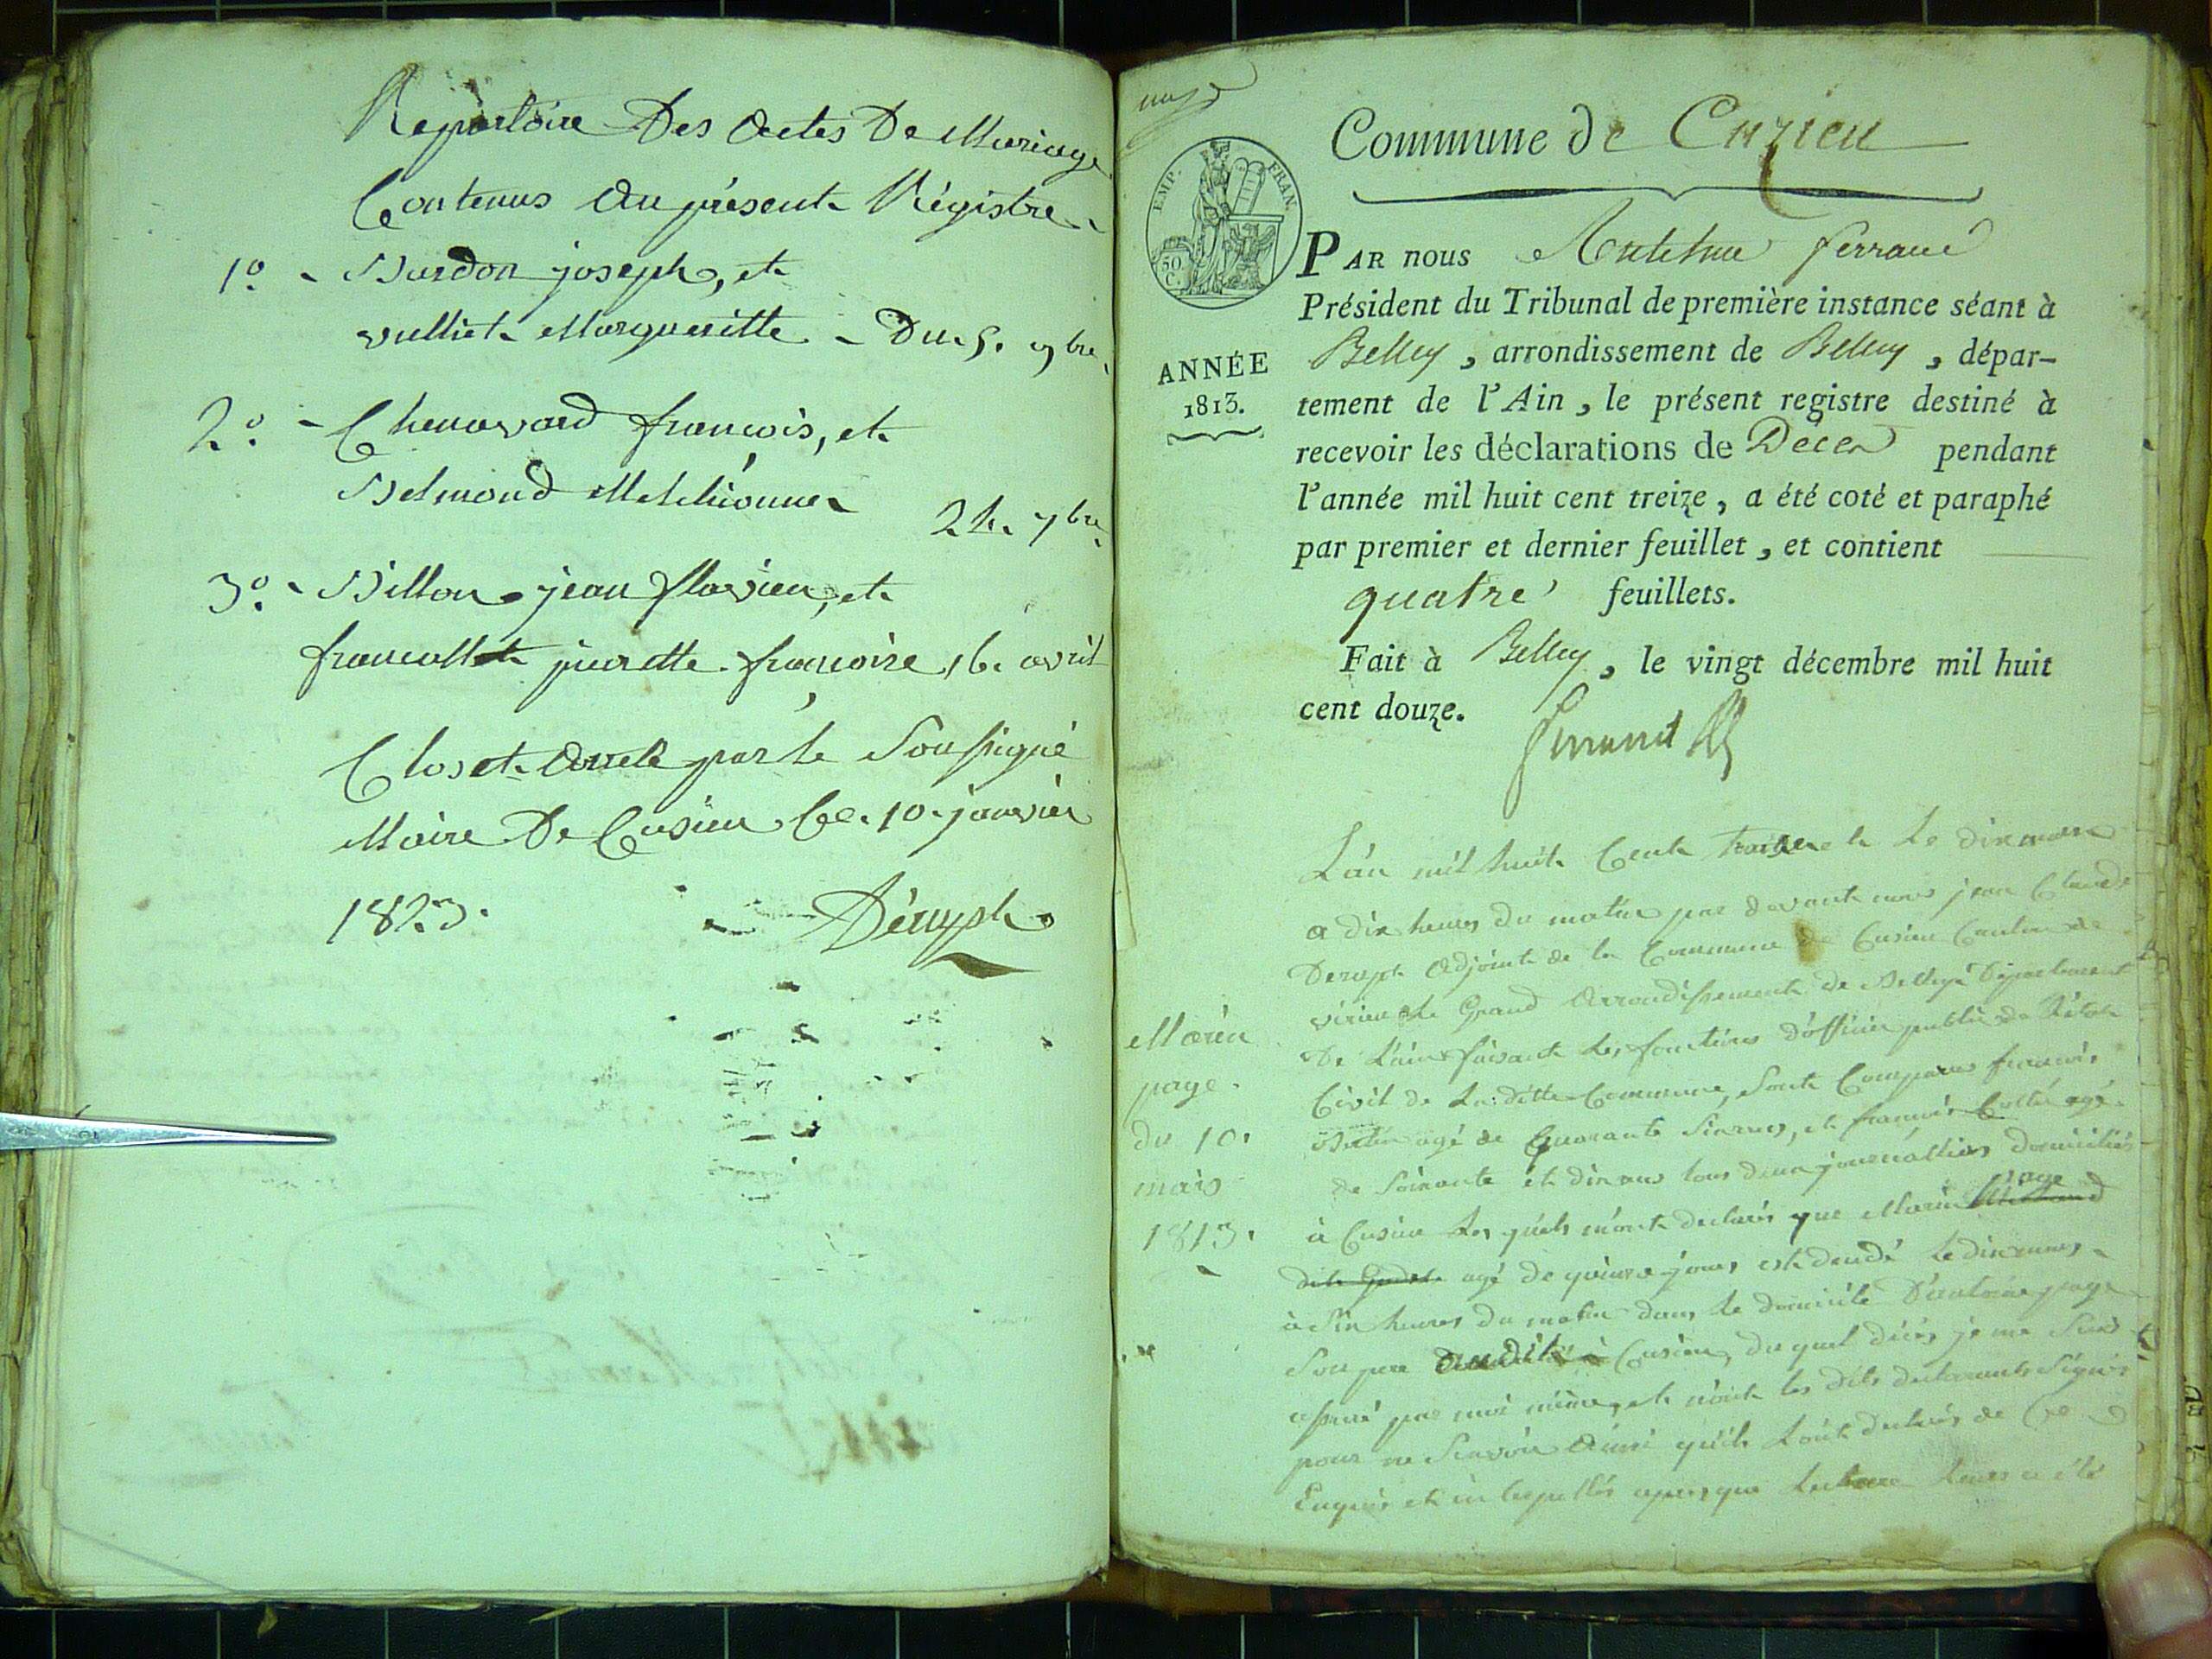 Repertoire Des Actes De Mariage
Contenus Au présent Régistre
1º. Burdon joseph, et
vulliet Margueritte - Du 5. 9bre
2º. - Chenavard francois, et
Belmond Melchionne
24. 7bre
3º. Billon jean flavien, et
francallet françoise 16. avril
Clos et Arreté par le Soussigné
Maire De Cusieu Ce. 10. janvier
1823.
Déruph
Commune de Cuzieu
EMP. FRAN.
50 C.
ANNÉE
1813.
PAR nous Anthelme ferrand
Président du Tribunal de première instance séant à
Belley, arrondissement de Belley, dépar-
tement de l'Ain, le présent registre destiné à
recevoir les déclarations de Décès pendant
l'année mil huit cent treize, a été coté et paraphé
par premier et dernier feuillet, et contient
quatre feuillets.
Fait à Belley, le vingt décembre mil huit
cent douze.
Marin
page.
du 10.
mars
1813.
L'an mil huit Cent treize et le dix mars
a dix heures du matin par devant nous jean Claude
Deruph Adjoint de la Commune de Cusieu Canton de
virieu le Grand Arrondissement de Belley Département
De L'ain faisant les fonctions d'officier public de L'état
Civil de La ditte Commune, Sont Comparus francois
agé de Quarante Six ans, et francois agé
de Soixante et dix ans tous deux journalliers domiciliés
à Cusieu Les quels m'ont declarés que Marin page
agé de quinze jours est decedé Le dix mars
à Six heures du matin dans Le domicile D'antoine page
Son pere Audit Cusieu, du quel décès je me Suis
assuré par moi même, et n'ont les dits declarants Signés
pour ne Scavoir Ainsi qu'ils L'ont declarés de Ce
Enquis et interpellés apres que Lecture Leurs a été